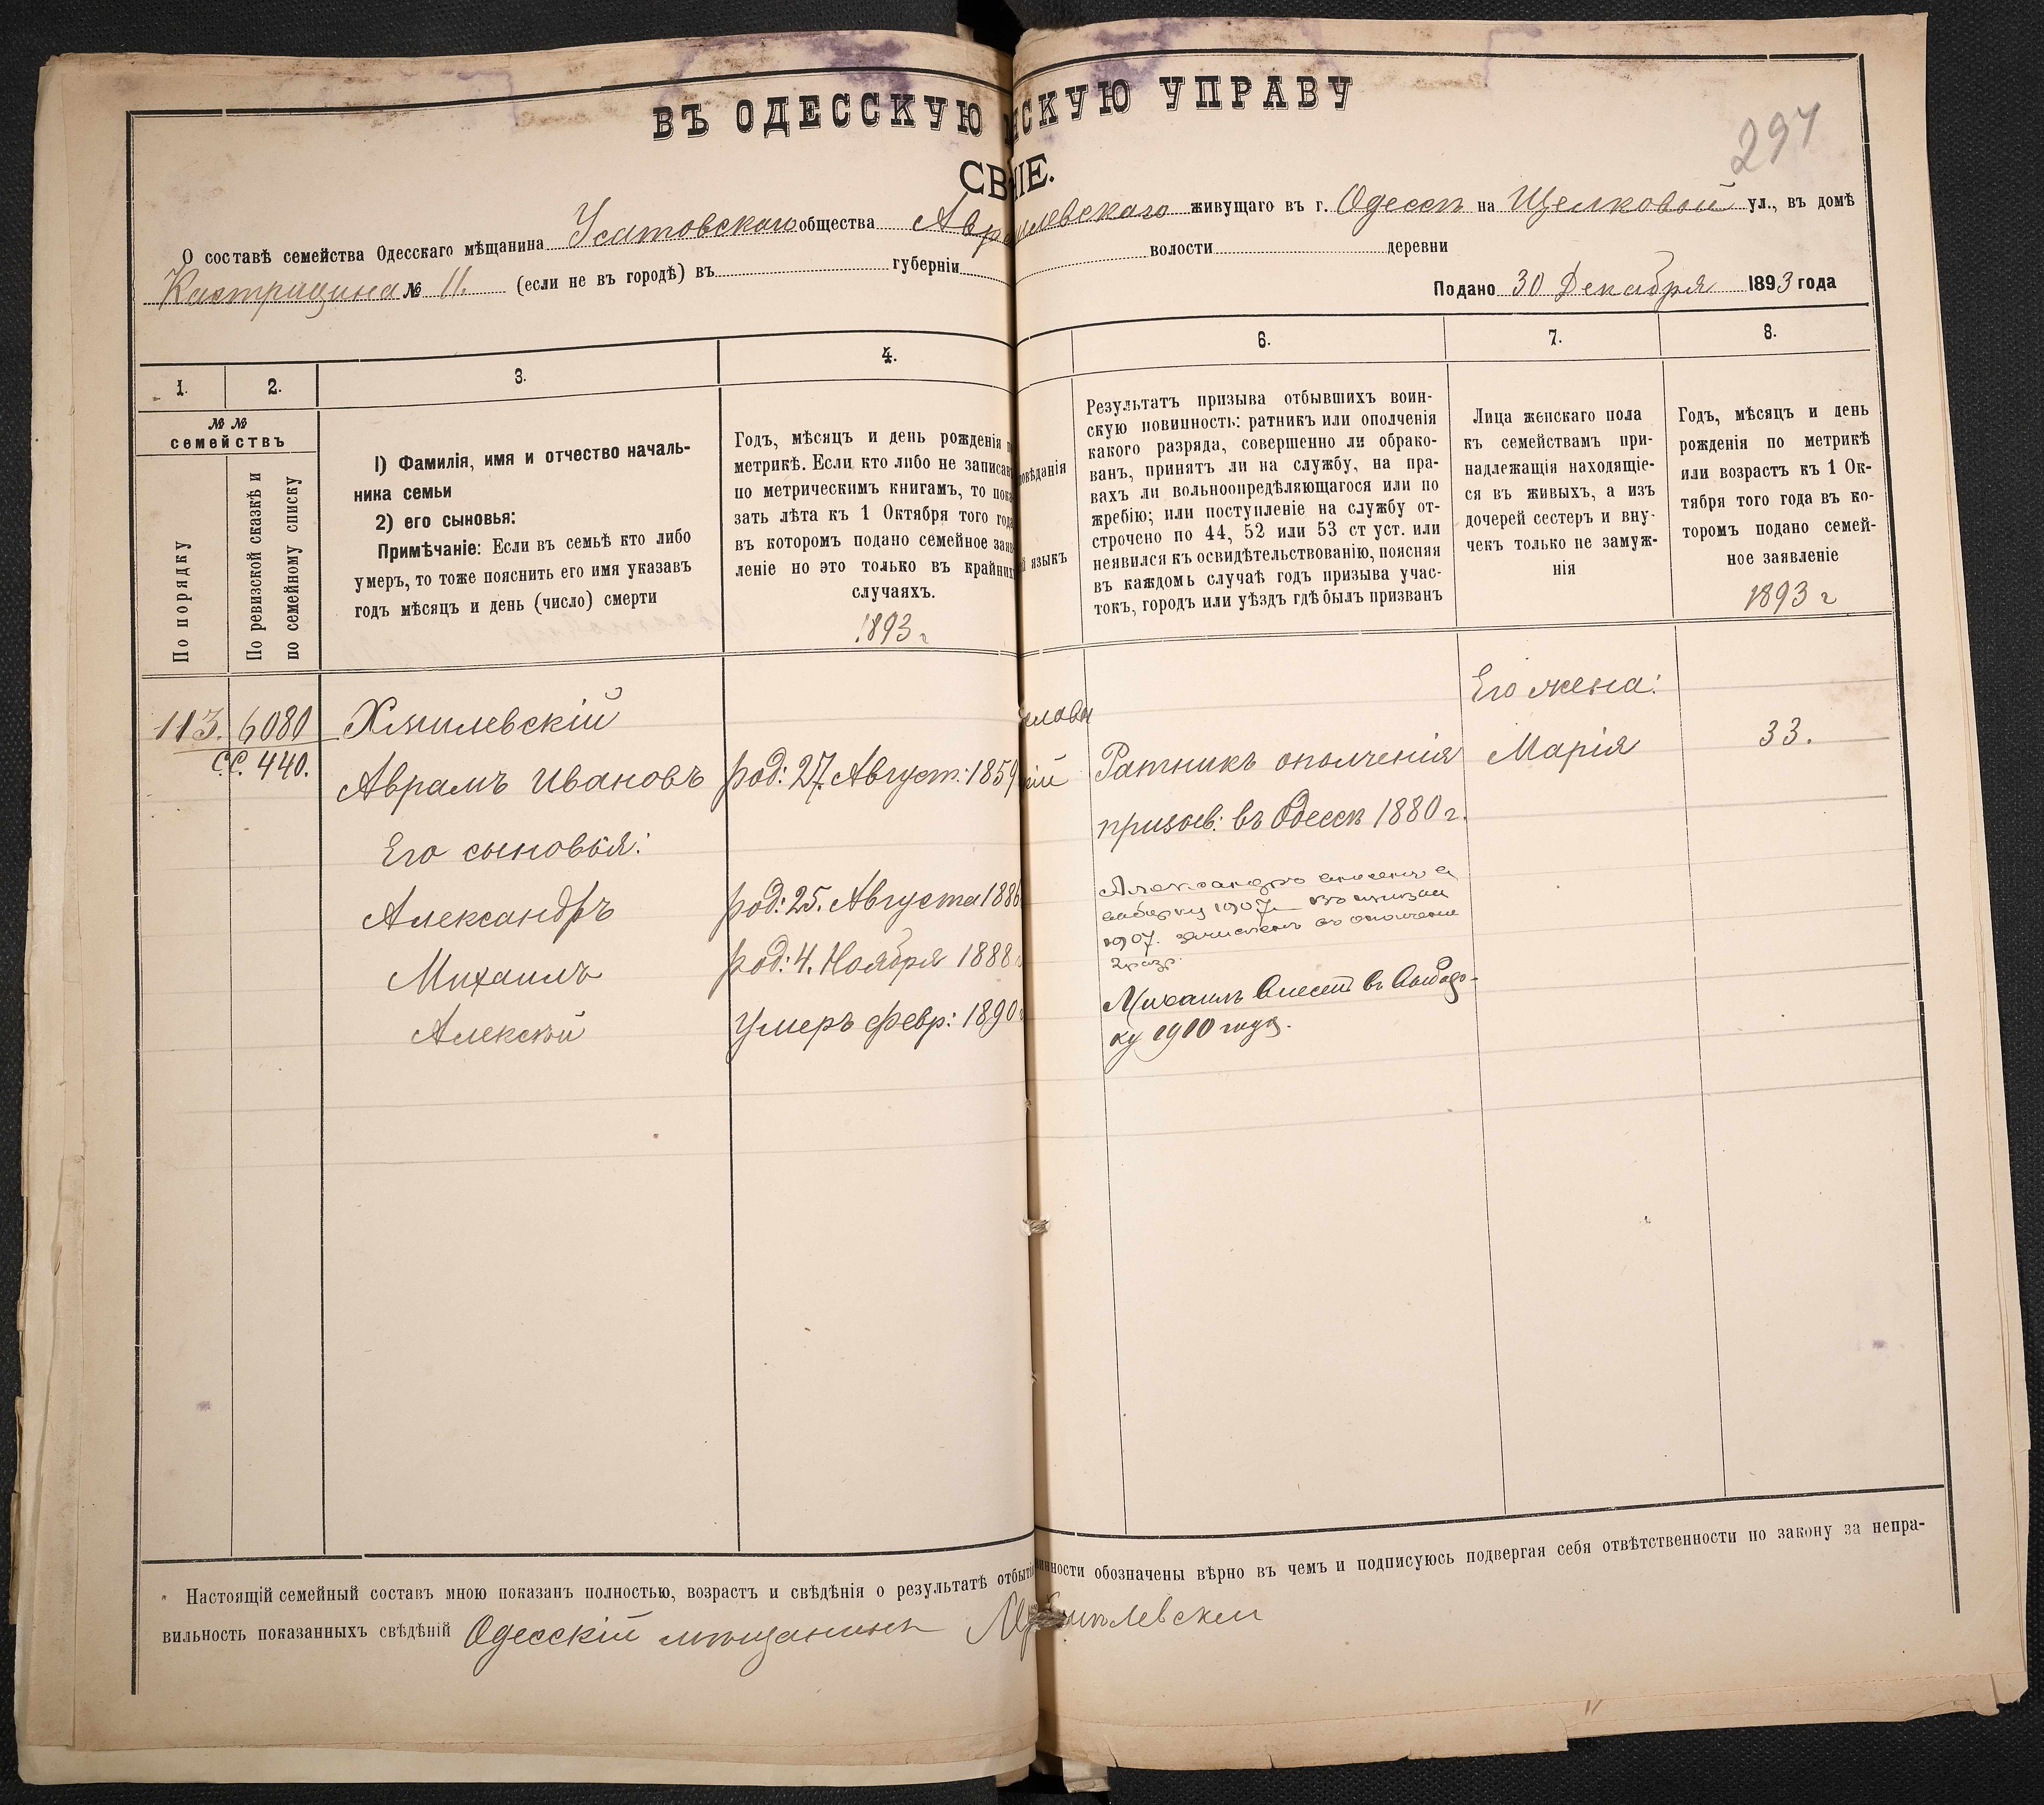 ВЪ ОДЕССКУЮ НСКУЮ УПРАВУ
297
СВ НІЕ.
О составѣ семейства Одесскаго мѣщанина Усатовскаго общества Авра милевскаго живущаго въ г. Одессѣ на Щелковой ул., въ домѣ
№ 11. (если не въ городѣ) въ губерніи волости деревни
Подано 30 Декабря 1893 года
1. 2. 3. 4. 6. 7. 8.
№№
семействъ
По порядку
По ревизской сказкѣ и
по семейному списку
1) Фамилія, имя и отчество началь-
ника семьи
2) его сыновья:
Примѣчаніе: Если въ семьѣ кто либо
умеръ, то тоже пояснить его имя указавъ
годъ мѣсяцъ и день (число) смерти
Годъ, мѣсяцъ и день рожденія п
метрикѣ. Если кто либо не записан
по метрическимъ книгамъ, то пока
зать лѣта къ 1 Октября того год
въ которомъ подано семейное заяв
леніе но это только въ крайних
случаяхъ.
1893 г
повѣданія
й языкъ
Результатъ призыва отбывшихъ воин-
скую повинность: ратникъ или ополченія
какого разряда, совершенно ли обрако-
ванъ, принятъ ли на службу, на пра-
вахъ ли вольноопредѣляющагося или по
жребію; или поступленіе на службу от-
строчено по 44, 52 или 53 ст уст. или
неявился къ освидѣтельствованію, поясняя
въ каждомь случаѣ годъ призыва учас-
токъ, городъ или уѣздъ гдѣ былъ призванъ
Лица женскаго пола
къ семействамъ при-
надлежащія находящіе-
ся въ живыхъ, а изъ
дочерей сестеръ и вну-
чекъ только не замуж-
нія
Годъ, мѣсяцъ и день
рожденія по метрикѣ
или возрастъ къ 1 Ок-
тября того года въ ко-
торомъ подано семей-
ное заявленіе
1893 г
Его жена:
113. 6080 Хмилевскій славн
С.С. 440. Аврамъ Ивановъ род: 27. Август: 1859 кій Ратникъ ополченія Марія 33.
призыв: въ Одессѣ 1880 г.
Его сыновья:
Александръ род: 25. Августа 1886
Александръ внесенъ в
выборку 1907 въ призыв
1907. зачисленъ въ ополчение
2 разр.
Михаилъ род: 4. Ноября 1888
Алексѣй Умеръ Февр: 1890
Михаилъ Внесен въ Выбор-
ку 1910 года.
Настоящій семейный составъ мною показанъ полностью, возрастъ и свѣдѣнія о результатѣ отбытія инности обозначены вѣрно въ чемъ и подписуюсь подвергая себя отвѣтственности по закону за непра-
вильность показанныхъ свѣдѣній Одесскій мѣщанинъ